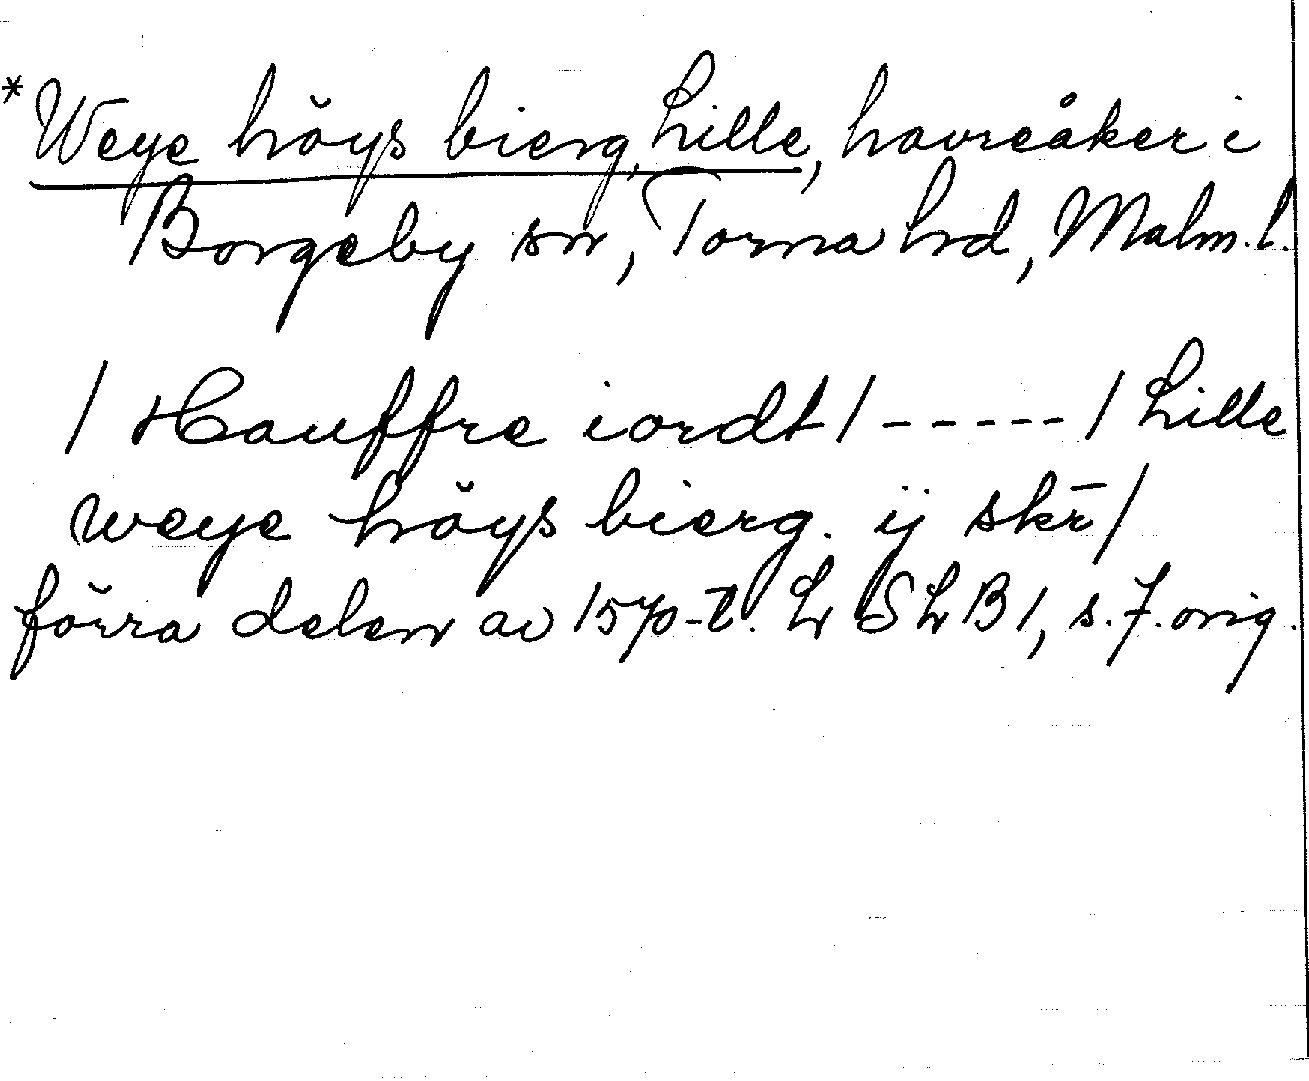 *Weye höys bierg, Lille, havreåker i
Borgeby sn, Torna hd, Malm. l.
/ Hauffre iordt / ----- / Lille
weye höys bierg. ij skr̄ /
förra delen av 1570-t. L SLB 1, s. 7. orig.